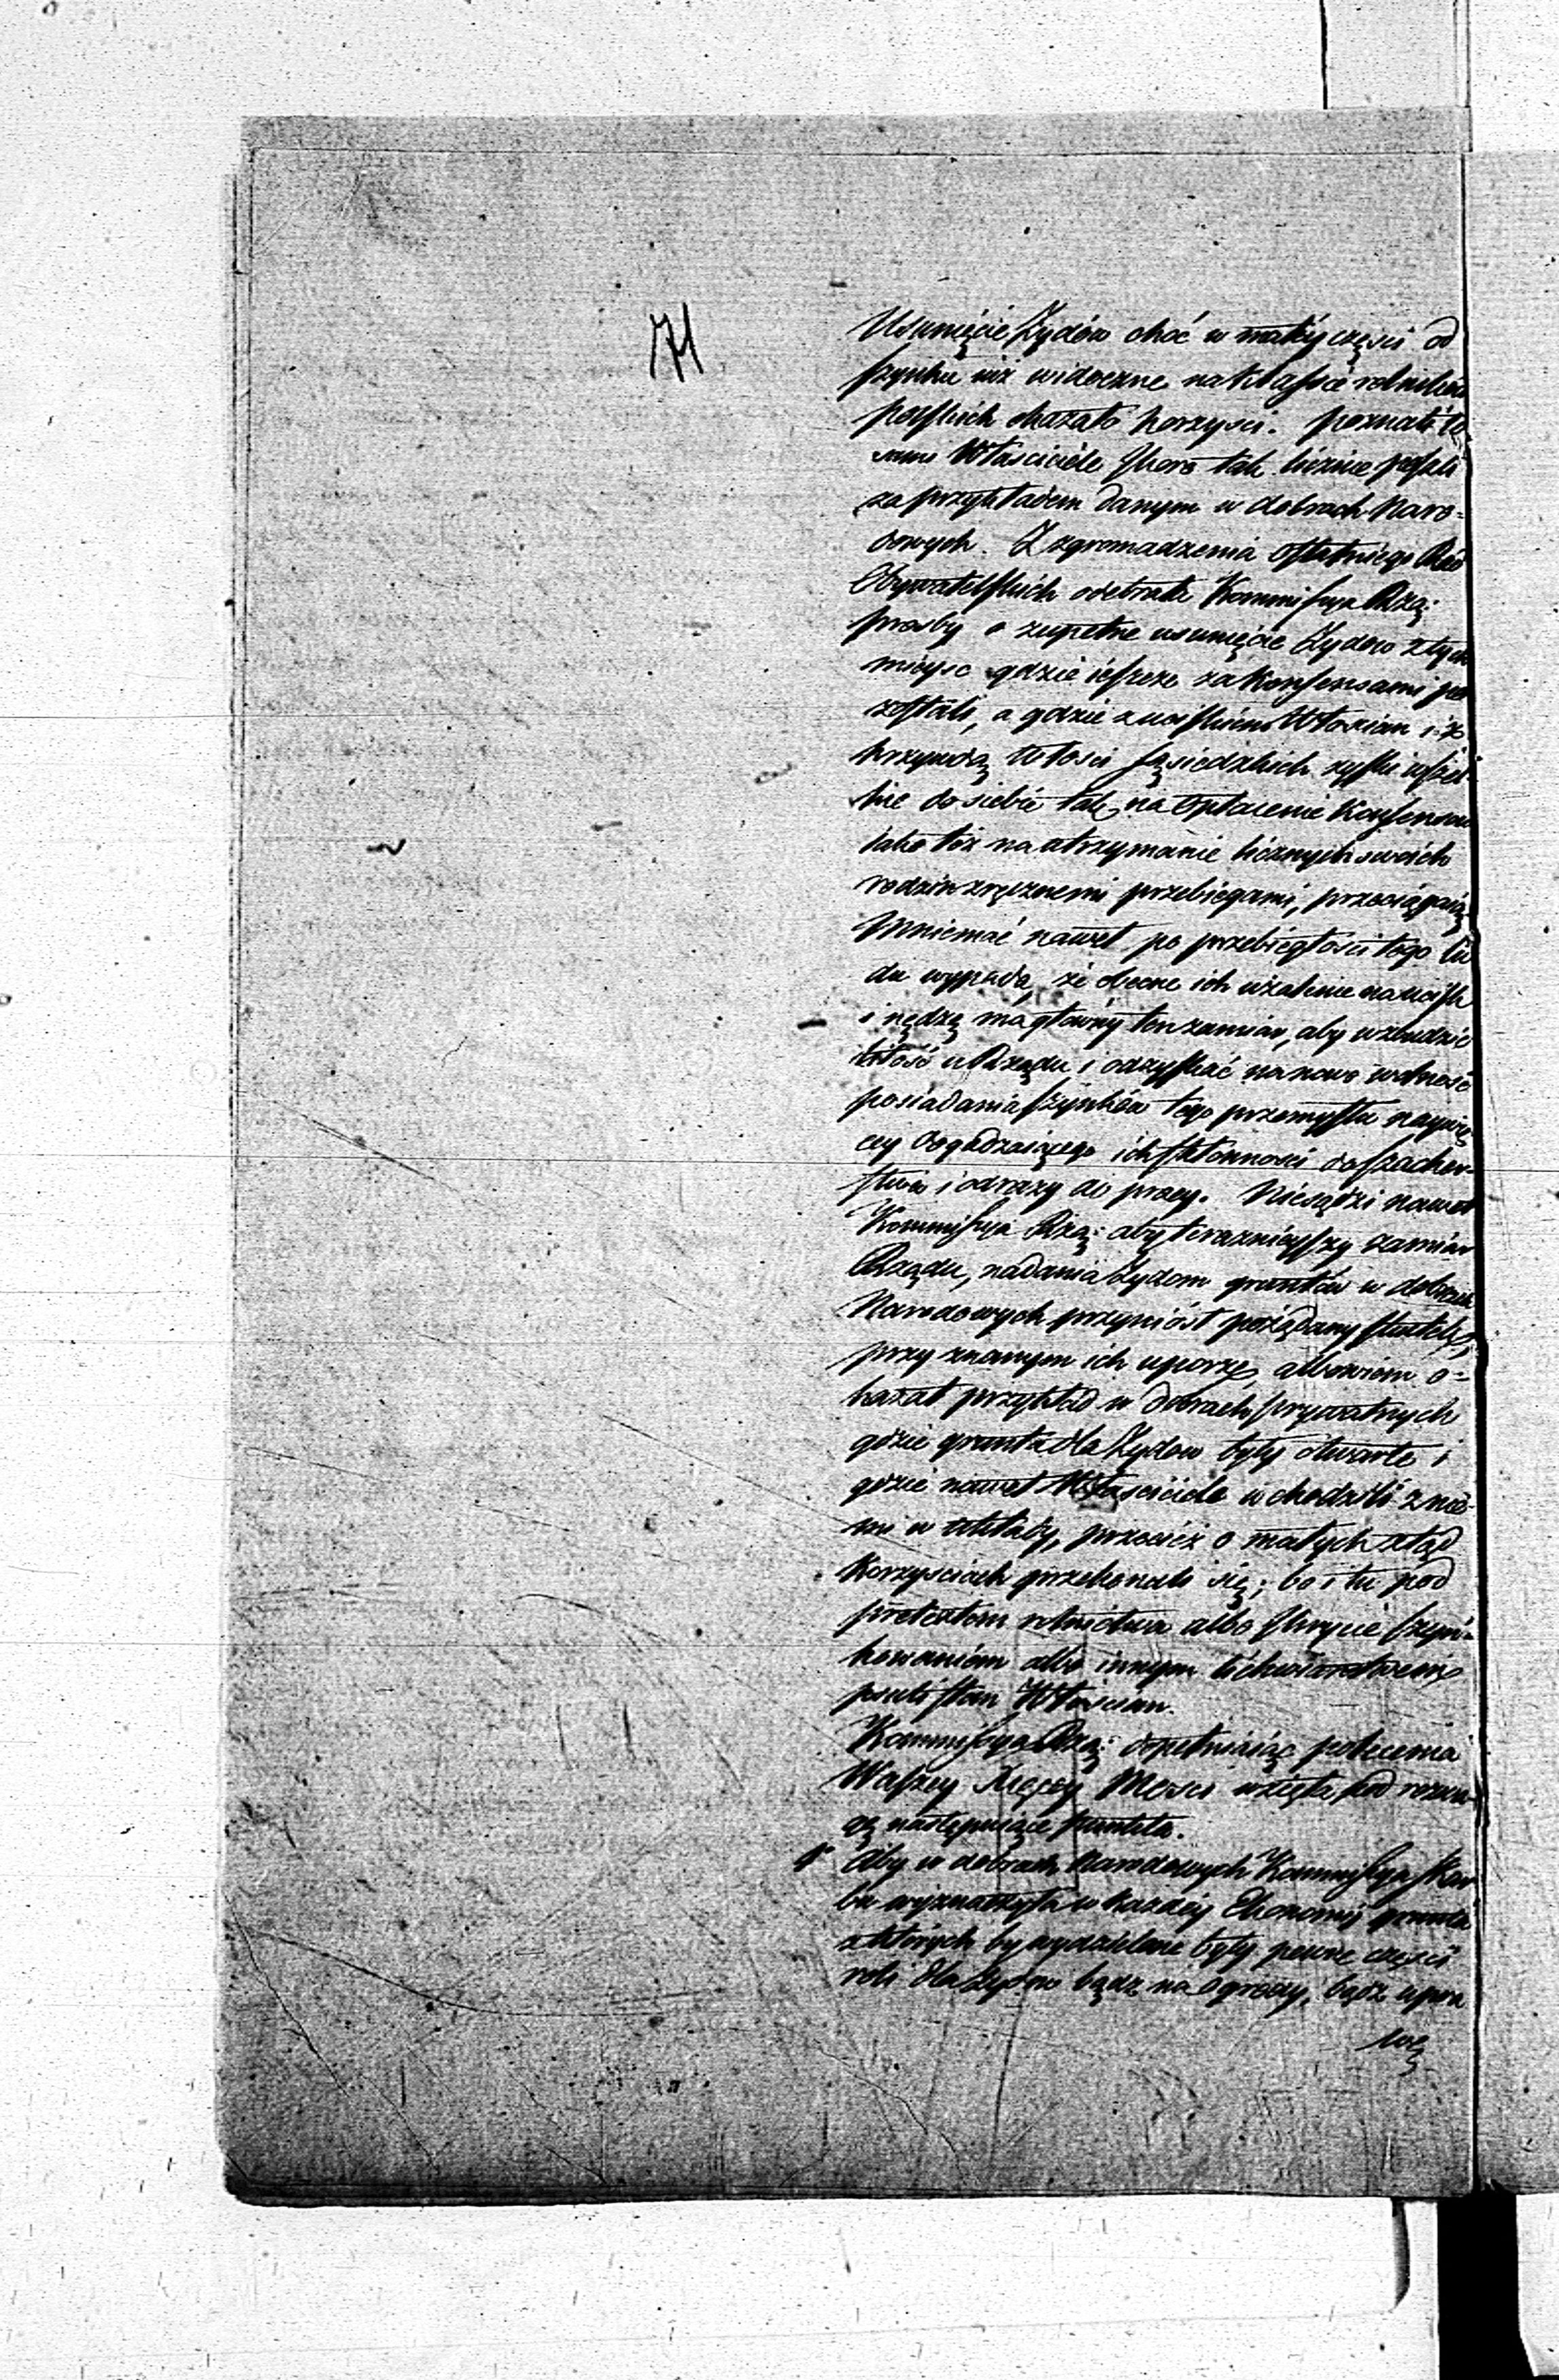 71
Usunięcie Żydów choć w małéy części od
szynku iuż widoczne na klassie rolników
polskich okazało korzyści. Poznali to
sami Właściciele skoro tak licznie poszli
za przykładem danym w dobrach Naro=
dowych. Z zgromadzenia ostatniego Rad
Obywatelskich odebrała Kommissya Rzą:
prośby o zupełne usunięcie Żydów z tych
mieysc gdzie ieszcze za Konsensami po
zostali, a gdzie z uciskiem Włościan i z
krzywdą włości sąsiedzkich zyski wszel-
kie do siebie tak na opłacenie Konsensu
iako też na utrzymanie licznych swoich
rodzin zręcznemi przebiegami, przeciągaią.
Mniemać nawet po przebiegłości tego lu
du wypada, że obecne ich użalenie na ucisk
i nędzę ma główny ten zamiar, aby wzbudzić
litość u Rządu i odzyskać na nowo wolność
posiadania szynków tego przemysłu naywię
cey dogadzaiącego ich skłonności do szacher-
stwa i odrazy do pracy. Niesądzi nawet
Kommissya Rzą: aby teraznieyszy zamiar
Rządu, nadania Żydom gruntów w dobrach
Narodowych przyniósł pożądany skutek,
przy znanym ich uporze, albowiem o=
kazał przykład w dobrach prywatnych
gdzie grunta dla Żydow były otwarte i
gdzie nawet Właściciele wchodzili z nie-
mi w układy, przecież o małych ztąd
Korzyściach przekonali się; bo i tu pod
pretextem rolnictwa albo skrycie szyn-
kowaniem albo innym lichwiarstwem
psuli stan Włościan.
Kommissya Rzą: dopełniaiąc polecenia
Waszey Xięcey Mości wzięła pod rozwa-
gę następuiące punkta.
1° Aby w dobrach Narodowych Kommissya Skar
bu wyznaczyła w każdéy Ekonomij grunta
z których by wydzielone były pewne części
roli dla Żydow bądź na ogrody, bądź upra
wę